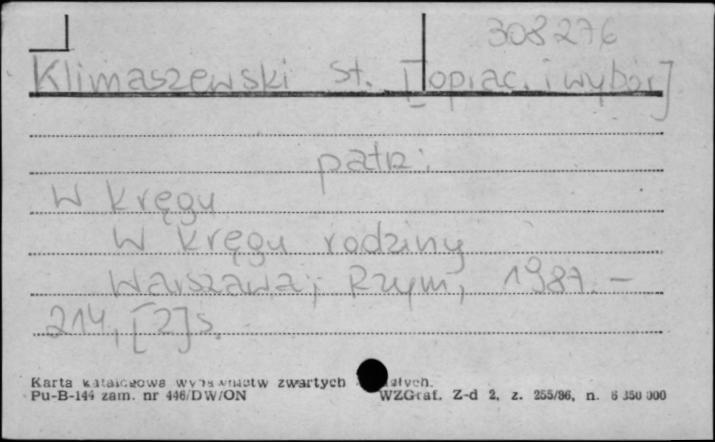 308276
Klimaszewski St. [oprac. i wybór]
patrz:
W kręgu
W kręgu rodziny
Warszawa; Rzym, 1987. –
214, [2] s.
Karta katalogowa wydawnictw zwartych
Pu-B-144 zam. nr 446/DW/ON WZGraf. Z-d 2, z. 255/86, n. 6 350 000